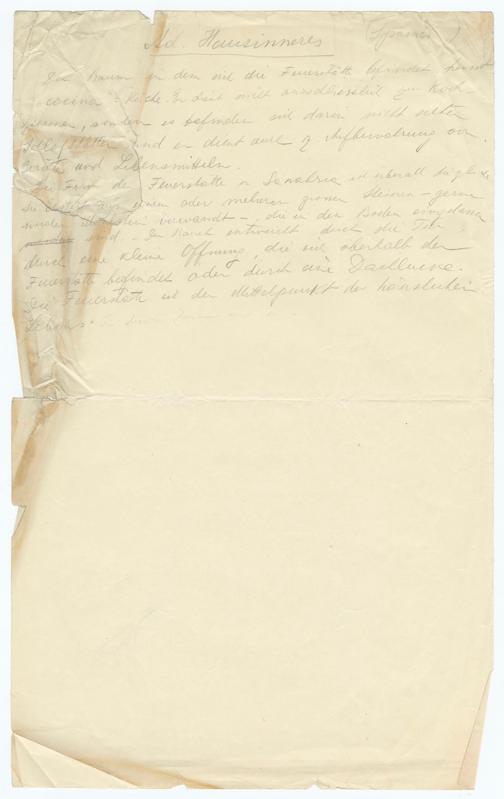 Ad. Hausinneres (Spanien)
Der Raum in dem sich die Feuerstätte befindet heisst
cocina = Küche. Er dient nicht ausschliesslich zum Koch
sondern es befinden sich darin nicht selten
und er dient auch z. Aufbewahrung von
Geräte und Lebensmitteln.
Die Form der Feuerstätte in Sanabria ist überall die gleiche
sie besteht aus einem oder mehreren grossen Steinen - gerne
werden verwandt -, die in den Boden eingelassen
sind. - Der Rauch entweicht durch die Tür
durch eine kleine Öffnung, die sich oberhalb der
Feuerstätte befindet oder durch eine Dachlucke.
Die Feuerstätte ist der Mittelpunkt des häuslichen
Lebens